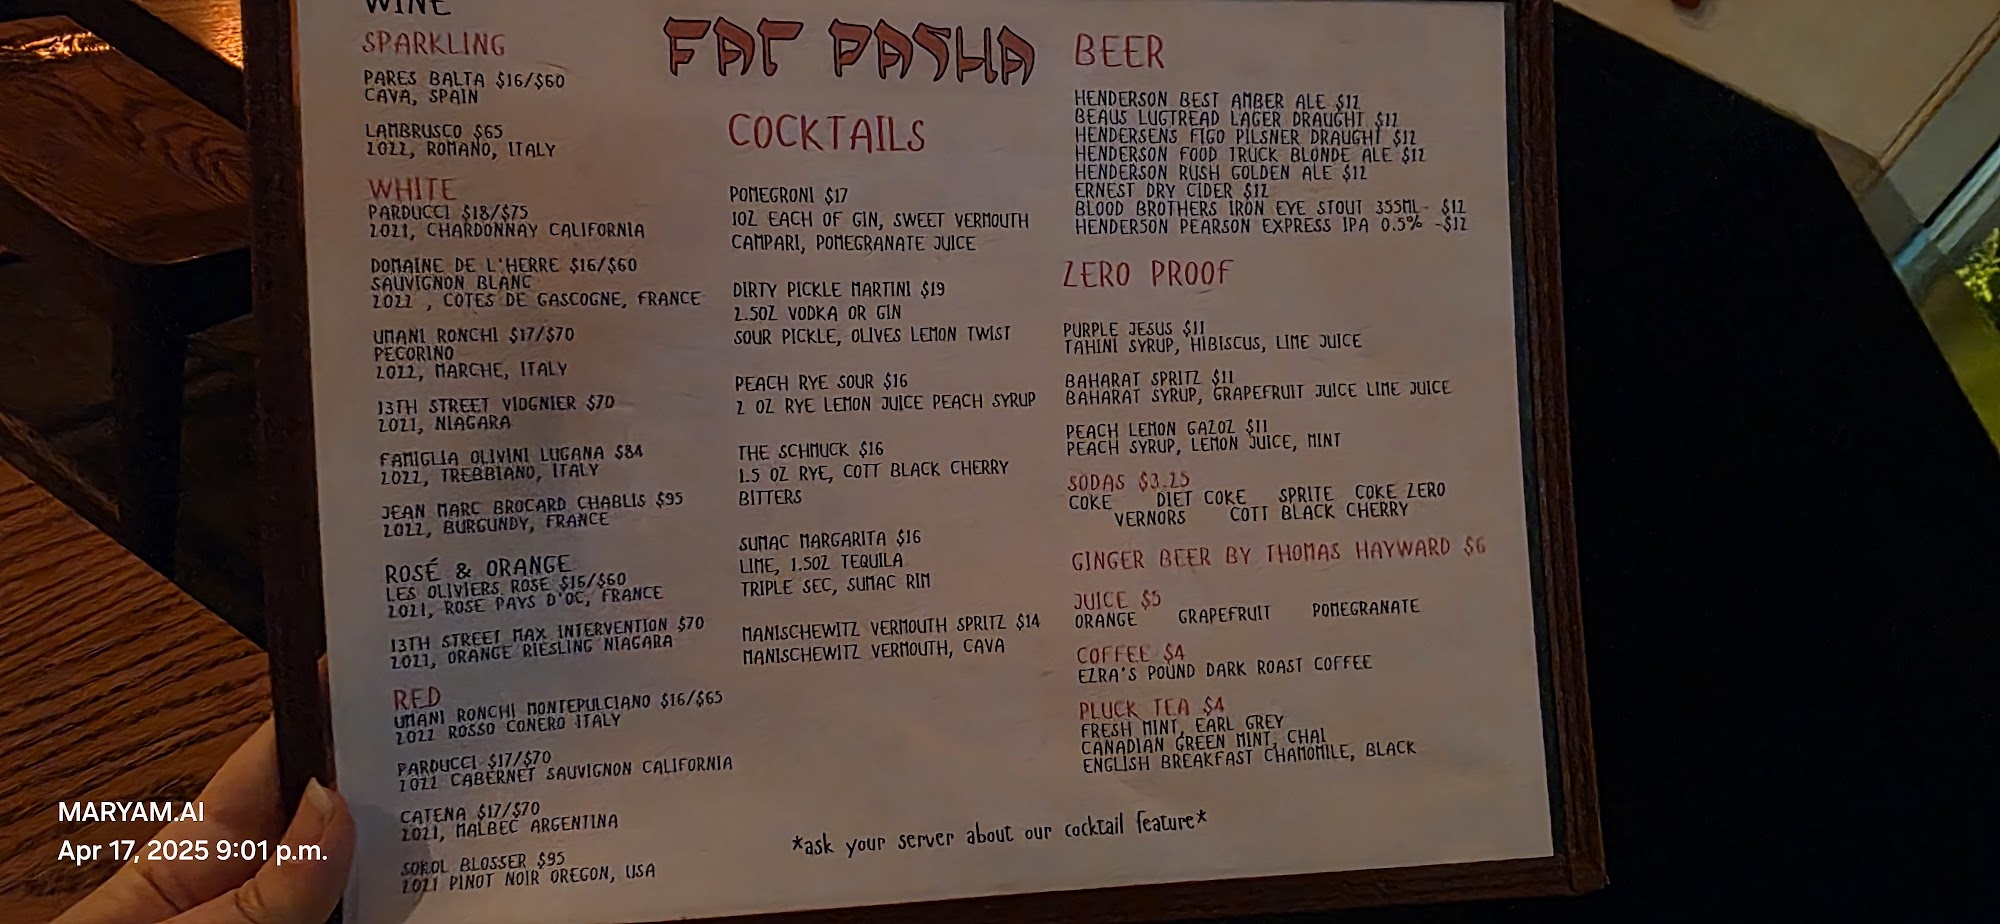 WINE
SPARKLING
PARES BALTA $16/$60
CAVA, SPAIN
LAMBRUSCO $65
2022, ROMANO, ITALY
WHITE
PARDUCCI $18/$75
2021, CHARDONNAY CALIFORNIA
DOMAINE DE L'HERRE $16/$60
SAUVIGNON BLANC
2022 , COTES DE GASCOGNE, FRANCE
UMANI RONCHI $17/$70
PECORINO
2022, MARCHE, ITALY
13TH STREET VIOGNIER $70
2021, NIAGARA
FAMIGLIA OLIVINI LUGANA $84
2022, TREBBIANO, ITALY
JEAN MARC BROCARD CHABLIS $95
2022, BURGUNDY, FRANCE
ROSÉ & ORANGE
LES OLIVIERS ROSE $16/$60
2021, ROSE PAYS D'OC, FRANCE
13TH STREET MAX INTERVENTION $70
2021, ORANGE RIESLING NIAGARA
RED
UMANI RONCHI MONTEPULCIANO $16/$65
2022 ROSSO CONERO ITALY
PARDUCCI $17/$70
2022 CABERNET SAUVIGNON CALIFORNIA
CATENA $17/$70
2021, MALBEC ARGENTINA
SOKOL BLOSSER $95
2021 PINOT NOIR OREGON, USA
FAT PASHA
COCKTAILS
POMEGRONI $17
1OZ EACH OF GIN, SWEET VERMOUTH
CAMPARI, POMEGRANATE JUICE
DIRTY PICKLE MARTINI $19
2.5OZ VODKA OR GIN
SOUR PICKLE, OLIVES LEMON TWIST
PEACH RYE SOUR $16
2 OZ RYE LEMON JUICE PEACH SYRUP
THE SCHMUCK $16
1.5 OZ RYE, COTT BLACK CHERRY
BITTERS
SUMAC MARGARITA $16
LIME, 1.5OZ TEQUILA
TRIPLE SEC, SUMAC RIM
MANISCHEWITZ VERMOUTH SPRITZ $14
MANISCHEWITZ VERMOUTH, CAVA
BEER
HENDERSON BEST AMBER ALE $12
BEAUS LUGTREAD LAGER DRAUGHT $12
HENDERSENS FIGO PILSNER DRAUGHT $12
HENDERSON FOOD TRUCK BLONDE ALE $12
HENDERSON RUSH GOLDEN ALE $12
ERNEST DRY CIDER $12
BLOOD BROTHERS IRON EYE STOUT 355ML- $12
HENDERSON PEARSON EXPRESS IPA 0.5% -$12
ZERO PROOF
PURPLE JESUS $11
TAHINI SYRUP, HIBISCUS, LIME JUICE
BAHARAT SPRITZ $11
BAHARAT SYRUP, GRAPEFRUIT JUICE LIME JUICE
PEACH LEMON GAZOZ $11
PEACH SYRUP, LEMON JUICE, MINT
SODAS $3.25
COKE DIET COKE SPRITE COKE ZERO
VERNORS COTT BLACK CHERRY
GINGER BEER BY THOMAS HAYWARD $6
JUICE $5
ORANGE GRAPEFRUIT POMEGRANATE
COFFEE $4
EZRA'S POUND DARK ROAST COFFEE
PLUCK TEA $4
FRESH MINT, EARL GREY
CANADIAN GREEN MINT, CHAI
ENGLISH BREAKFAST CHAMOMILE, BLACK
*ask your server about our cocktail feature*
MARYAM.AI
Apr 17, 2025 9:01 p.m.